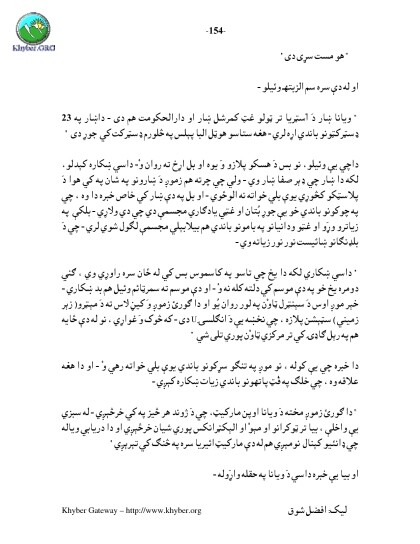 Khyber.ORG
-154-
" هو مست سړی دی "
او له دې سره سم الزبتهـ وئیلو -
" ویانا ښار دَ آسټریا تر ټولو غټ کمرشل ښار او دارالحکومت هم دی - داښار په 23
ډسټرکټونو باندې اړه لري - هغه ستاسو هوټل البا پیلس په څلورم ډسټرکټ کې جوړ دی "
داچې یې وئیلو ، نو بس دَ هسکو پلازو دَ یوه او بل اړخ ته روان وُ - داسې ښکاره کېدلو،
لکه دا ښار چې ډېر صفا ښار وي - ولې چې چرته هم زموږ دَ ښارونو په شان په کې هوا دَ
پلاسټکو کڅوړې یوې بلې خواته نه الوځوي - او بل په دې ښار کې خاص خبره دا وه ، چې
په چوکونو باندې خو یې جوړ بُتان او غټې یادګاري مجسمې دي چې دي ولاړې - بلکې په
زیاترو وړو او غټو ودانیانو په بامونو باندې هم بېلابېلې مجسمې لګول شوې لري - چې دَ
بلډنګانو ښائیست نور نور زیاته وي -
" داسې ښکاري لکه دا یخ چې تاسو په کاسموس بس کې له ځان سره راوړې وي ، ګڼې
دومره یخ خو په دې موسم کې دلته کله نه وُ - او دې موسم ته سمرټائم وئیل هم بد ښکاري -
خیر موږ اوس دَ سېنټرل ټاوْن په لور روان یُو او دا ګورئ زموږ دَ کیڼ لاس ته دَ میټرو( زېر
زمینې) سټېشن پلازه ، چې نخښه یې دَ انګلسي U دی - که څوک وَغواړي ، نو له دې ځایه
هم په ریل ګاډي کې تر مرکزي ټاوْن پورې تللی شي "
دا خبره چې یې کوله ، نو موږ په تنګو سړکونو باندې یوې بلې خواته رهي وُ - او دا هغه
علاقه وه ، چې خلک په فُټ پاتهونو باندې زیات ښکاره کېږي -
" دا ګورئ زموږ مخته دَ ویانا اوپن مارکیټ، چې دَ ژوند هر څیز په کې خرڅېږي - له سبزۍ
یې واخلې ، بیا تر ټوکرانو او مېوُ او الېکټرانکس پورې شیان خرڅېږي او دا دریابي ویاله
چې ډانئیو کېنال نومېږي هم له دې مارکیټ ائیریا سره په څنګ کې تېرېږي "
او بیا یې خبره داسې دَ ویانا په حقله واړوله -
Khyber Gateway – http://www.khyber.org
لیک: افضل شوق